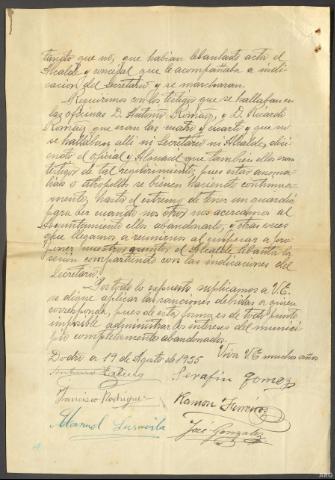 tándo que no, que habian lebantado acta el
Alcalde y concejal que le acompañaba a indi-
cacion del Secretario y se marcharan.
Requerimos con los testigos que se hallaban en
las oficinas D. Antonio Román, y D. Ricardo
Román que eran las cuatro y cuarto y que no
se hallaban alli ni Secretario ni Alcalde, di-
ciendo el oficial y Alguacil que tambien ellos eran
testigos de tal requerimiento, pues estas anoma-
lias o atropellos se bienen haciendo continua-
mente, hasta el extremo de tener un guardia
para ber cuando nosotros nos acercamos al
Ayuntamiento ellos abandonarlo, y otras veces
que llegamos a reunirnos al empezar a pro-
poner el Alcalde lebanta la
sesión compartiendo con las indicaciones del
Secretario.
Por todo lo expuesto suplicamos a V.E.
se digne aplicar las sanciones debidas a quien
corresponda, pues de esta forma es de todo punto
imposible administrar los intereses del munici-
pio completamente abandonados.
Dodro a 19 de Agosto de 1935 Viva VE muchos años
Serafin Gomez
Francisco Rodriguez
Ramon
Manuel
José Gonzalez